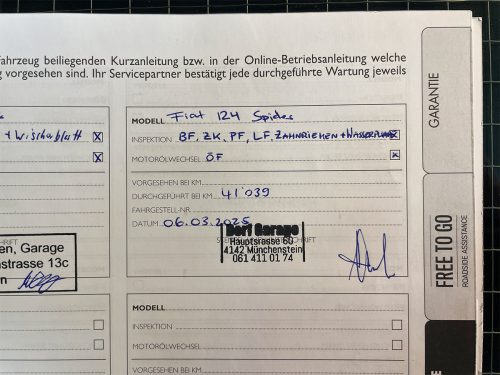 ahrzeug beiliegenden Kurzanleitung bzw. in der Online-Betriebsanleitung welche
vorgesehen sind. Ihr Servicepartner bestätigt jede durchgeführte Wartung jeweils
+ Wischerblatt
en, Garage
nstrasse 13c
n
MODELL Fiat 124 Spider
INSPEKTION BF, ZK, PF, LF, ZAHNRIEMEN + WASSERPUMPE
MOTORÖLWECHSEL ÖF
VORGESEHEN BEI KM
DURCHGEFÜHRT BEI KM 41'039
FAHRGESTELL-NR.
DATUM 06.03.2025
Dorf Garage
Hauptstrasse 60
4142 Münchenstein
061 411 01 74
MODELL
INSPEKTION
MOTORÖLWECHSEL
VORGESEHEN BEI KM
GARANTIE
FREE TO GO
ROADSIDE ASSISTANCE